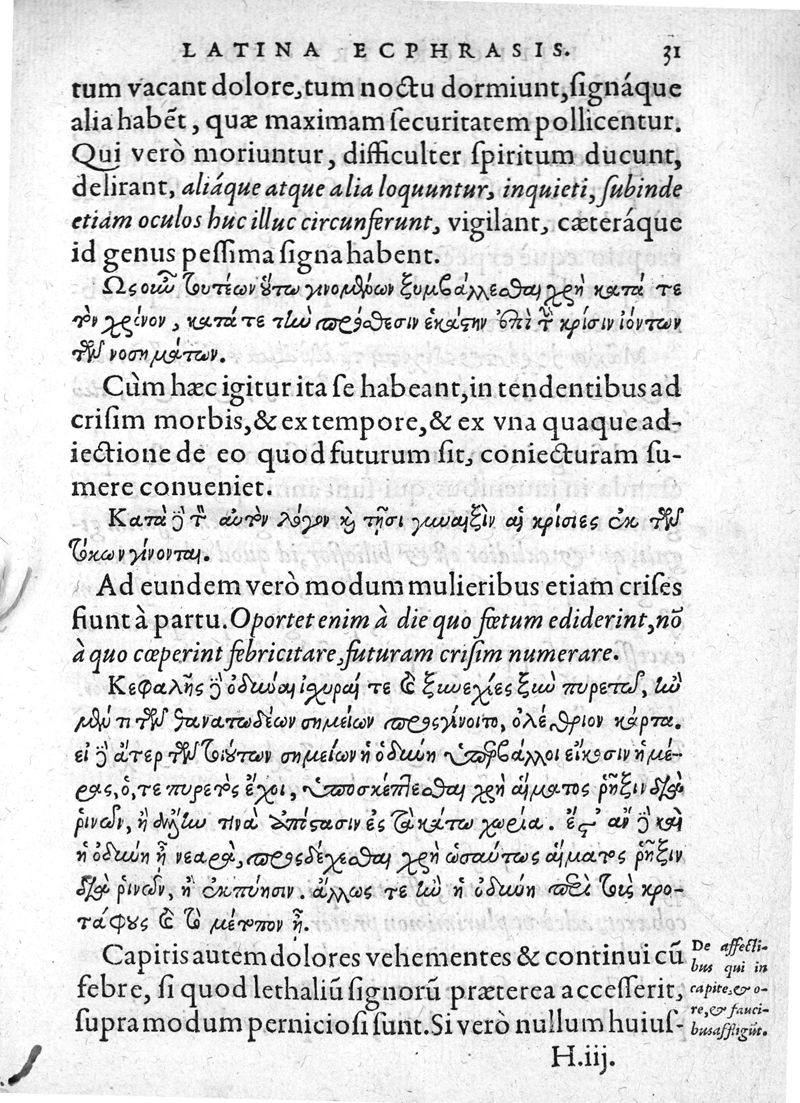 LATINA ECPHRASIS. 31
tum vacant dolore, tum noctu dormiunt, signáque
alia habẽt, quæ maximam securitatem pollicentur.
Qui verò moriuntur, difficulter spiritum ducunt,
delirant, aliáque atque alia loquuntur, inquieti, subinde
etiam oculos huc illuc circunferunt, vigilant, cæteráque
id genus pessima signa habent.
Ὡς οὖν τουτέων οὕτω γινομένων ξυμβάλλεσθαι χρὴ κατά τε
τὸν χρόνον, κατά τε τὴν πρόσθεσιν ἑκάστην ἐπὶ τὴν κρίσιν ἰόντων
τῶν νοσημάτων.
Cùm hæc igitur ita se habeant, in tendentibus ad
crisim morbis, & ex tempore, & ex vna quaque ad-
iectione de eo quod futurum sit, coniecturam su-
mere conueniet.
Κατὰ δὲ τὸν αὐτὸν λόγον καὶ τῇσι γυναιξὶν αἱ κρίσιες ἐκ τῶν
τόκων γίνονται.
Ad eundem verò modum mulieribus etiam crises
fiunt à partu. Oportet enim à die quo fœtum ediderint, nõ
à quo cœperint febricitare, futuram crisim numerare.
Κεφαλῆς δὲ ὀδύναι ἰσχυραί τε καὶ ξυνεχέες ξὺν πυρετῷ, ἢν
μέν τι τῶν θανατωδέων σημείων προσγίνοιτο, ὀλέθριον κάρτα.
εἰ δὲ ἄτερ τῶν τοιούτων σημείων ἡ ὀδύνη ὑπερβάλλοι εἴκοσιν ἡμέ-
ρας, ὅ, τε πυρετὸς ἔχοι, ὑποσκέπτεσθαι χρὴ αἵματος ῥῆξιν διὰ
ῥινῶν, ἢ ἄλλην τινὰ ἀπόστασιν ἐς τὰ κάτω χωρία. ἔστ' ἂν δὲ καὶ
ἡ ὀδύνη ᾖ νεαρὰ, προσδέχεσθαι χρὴ ὡσαύτως αἵματος ῥῆξιν
διὰ ῥινῶν, ἢ ἐκπύησιν. ἄλλως τε ἢν ἡ ὀδύνη περὶ τοὺς κρο-
τάφους καὶ τὸ μέτωπον ᾖ.
Capitis autem dolores vehementes & continui cũ
febre, si quod lethaliũ signorũ præterea accesserit,
supra modum perniciosi sunt. Si verò nullum huius-
De affecti-
bus qui in
capite, & o-
re, & fauci-
bus affligũt.
H.iij.